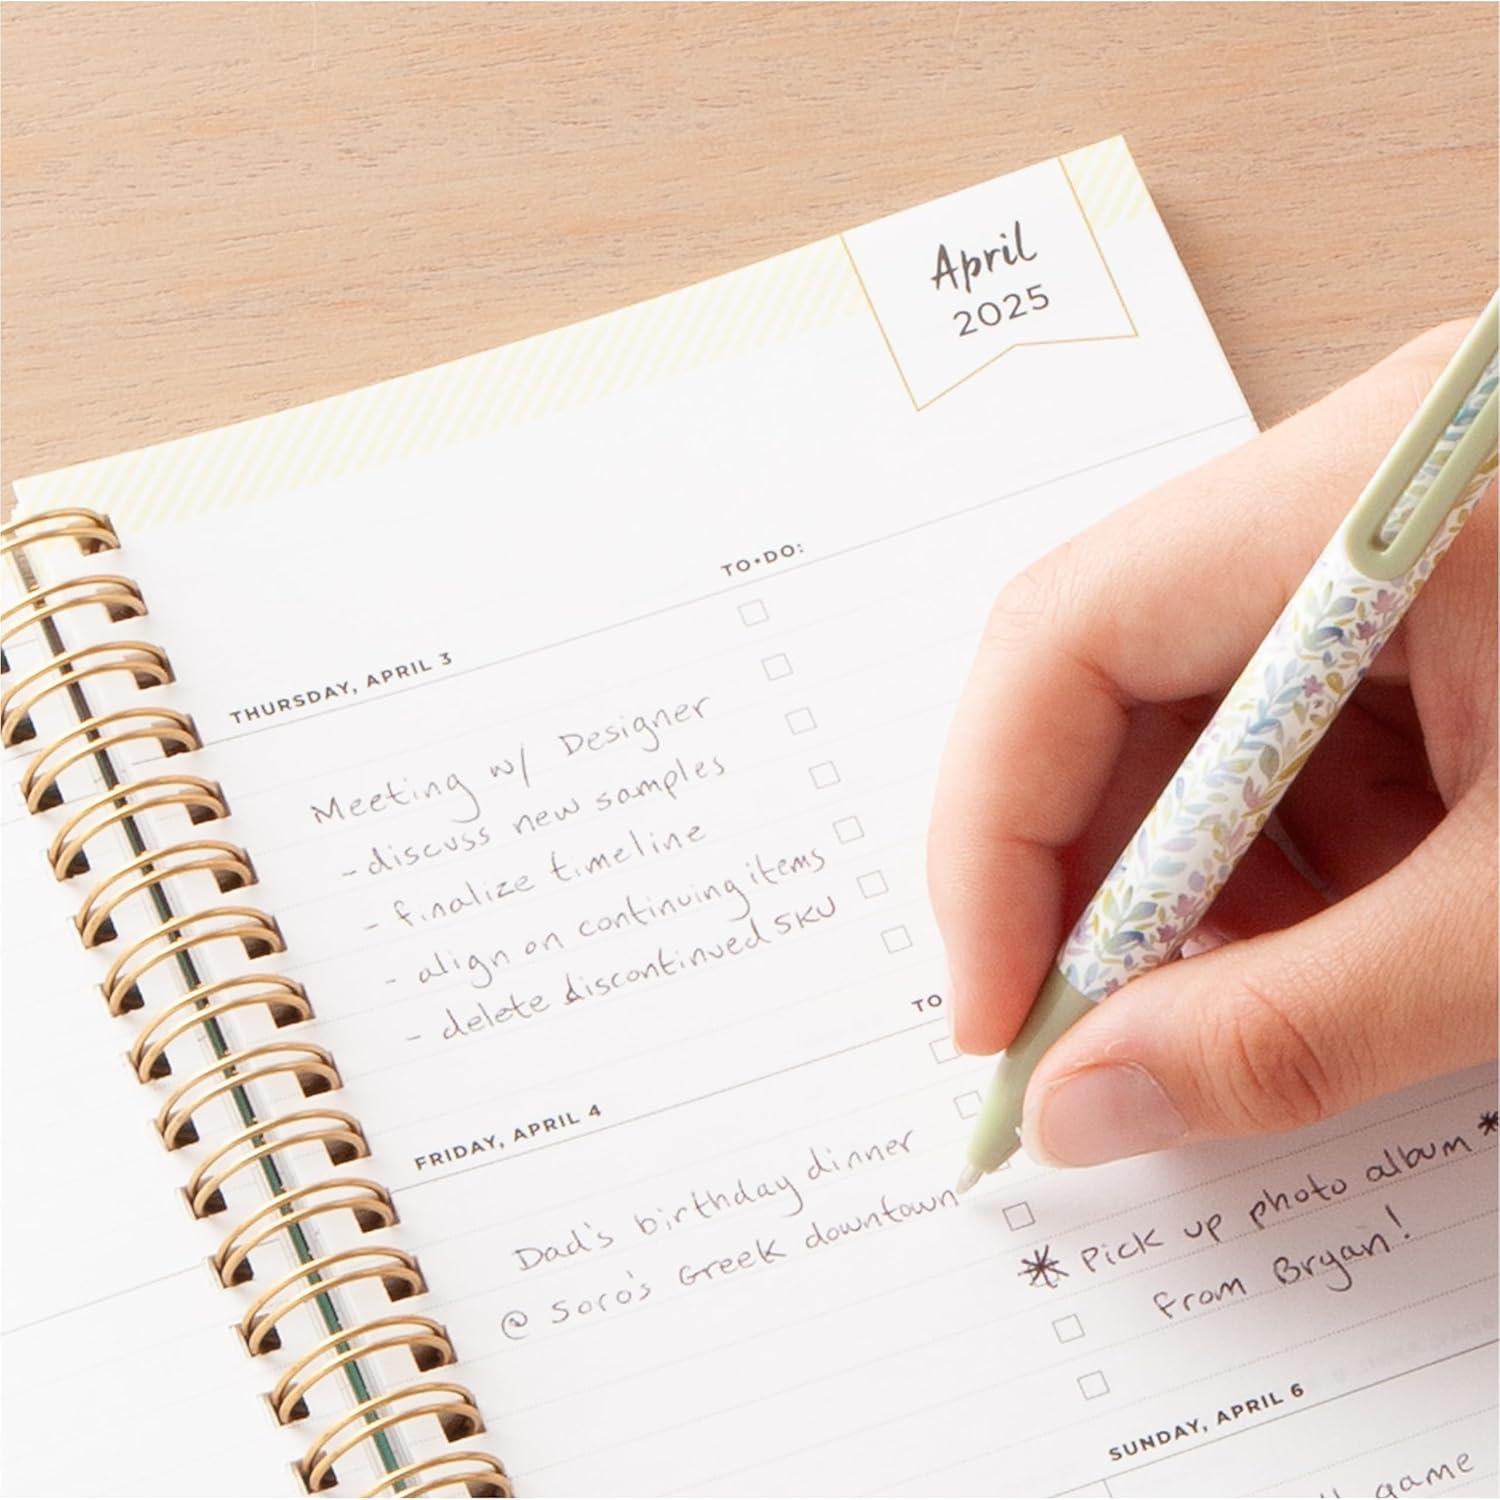 April
2025
TO•DO:
THURSDAY, APRIL 3
Meeting w/ Designer
- discuss new samples
- finalize timeline
- align on continuing items
- delete discontinued SKU
TO
FRIDAY, APRIL 4
Dad's birthday dinner
@ Soro's Greek downtown
* pick up photo album *
from Bryan!
SUNDAY, APRIL 6
game